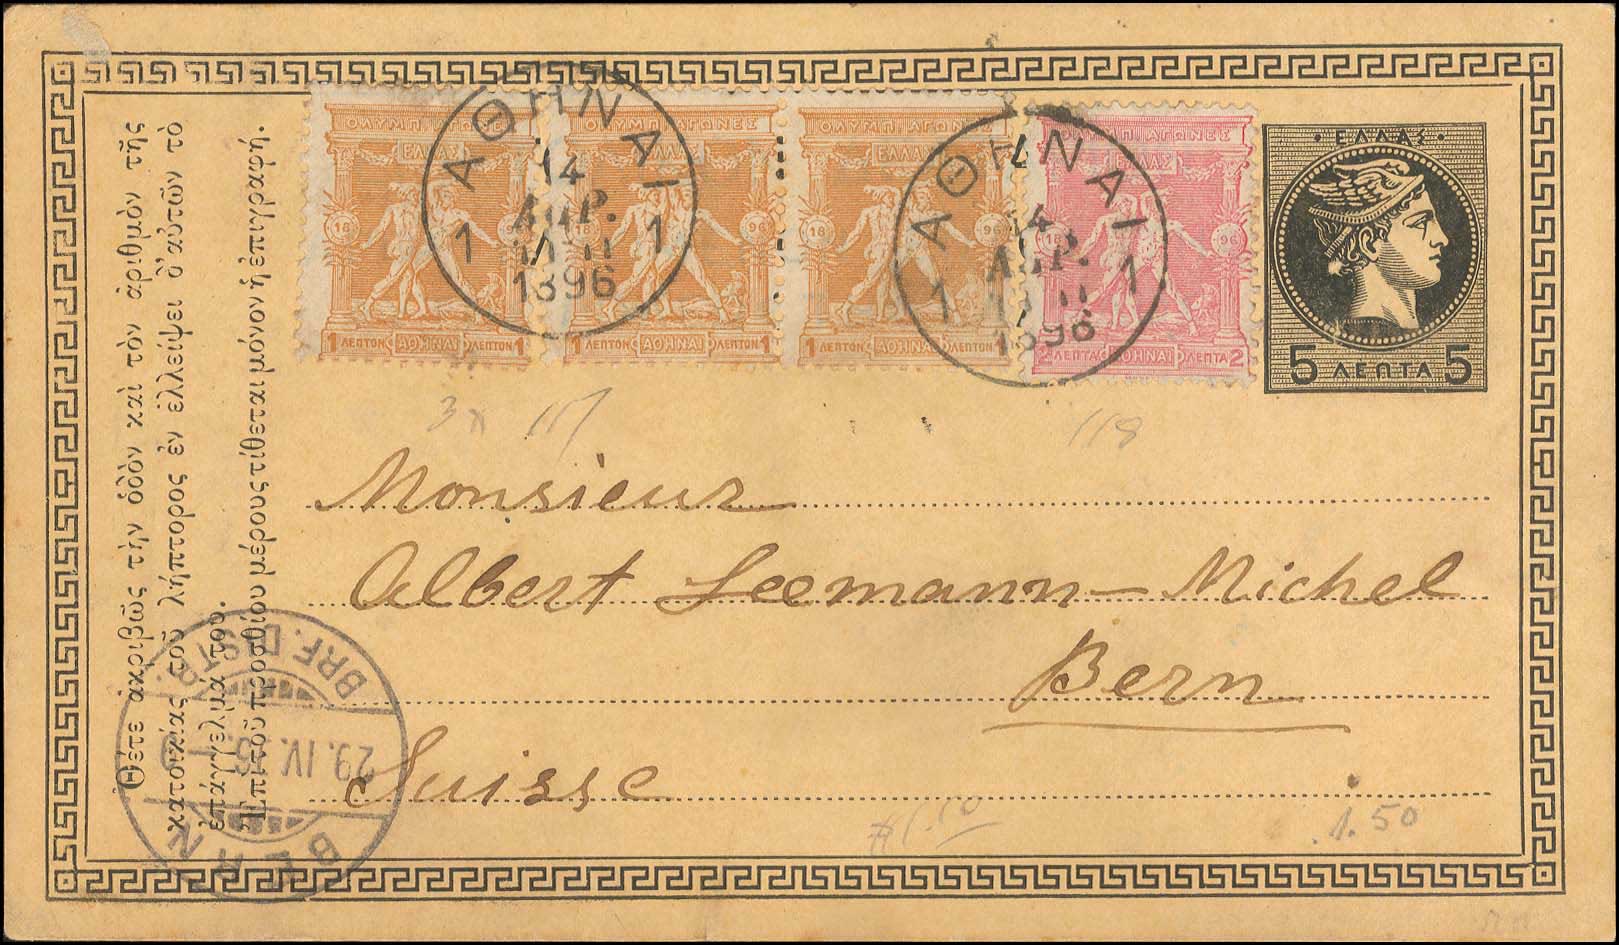 Θέτε ἀκριβῶς τὴν ὁδὸν καὶ τὸν ἀριθμὸν τῆς
κατοικίας τοῦ λήπτορος ἐν ἐλλείψει δ'αὐτῶν τὸ
ἐπάγγελμά του.
Ἐπὶ τοῦ προσθίου μέρους τίθεται μόνον ἡ ἐπιγραφή.
ΟΛΥΜΠ. ΑΓΩΝΕΣ
ΕΛΛΑΣ
18 96
1 ΛΕΠΤΟΝ ΑΘΗΝΑΙ ΛΕΠΤΟΝ 1
ΟΛΥΜΠ. ΑΓΩΝΕΣ
ΕΛΛΑΣ
18 96
1 ΛΕΠΤΟΝ ΑΘΗΝΑΙ ΛΕΠΤΟΝ 1
ΟΛΥΜΠ. ΑΓΩΝΕΣ
ΕΛΛΑΣ
18 96
1 ΛΕΠΤΟΝ ΑΘΗΝΑΙ ΛΕΠΤΟΝ 1
ΟΛΥΜΠ. ΑΓΩΝΕΣ
ΕΛΛΑΣ
18 96
2 ΛΕΠΤΑ ΑΘΗΝΑΙ ΛΕΠΤΑ 2
ΑΘΗΝΑΙ
14
ΑΠΡ.
1 1
1896
ΑΘΗΝΑΙ
14
ΑΠΡ.
1 1
1896
·ΕΛΛΑΣ·
5 ΛΕΠΤΑ 5
3 x 117
118
Monsieur
Albert Seemann-Michel
Bern
Suisse
1.50
BERN
29.IV.96
BRF. DISTR.